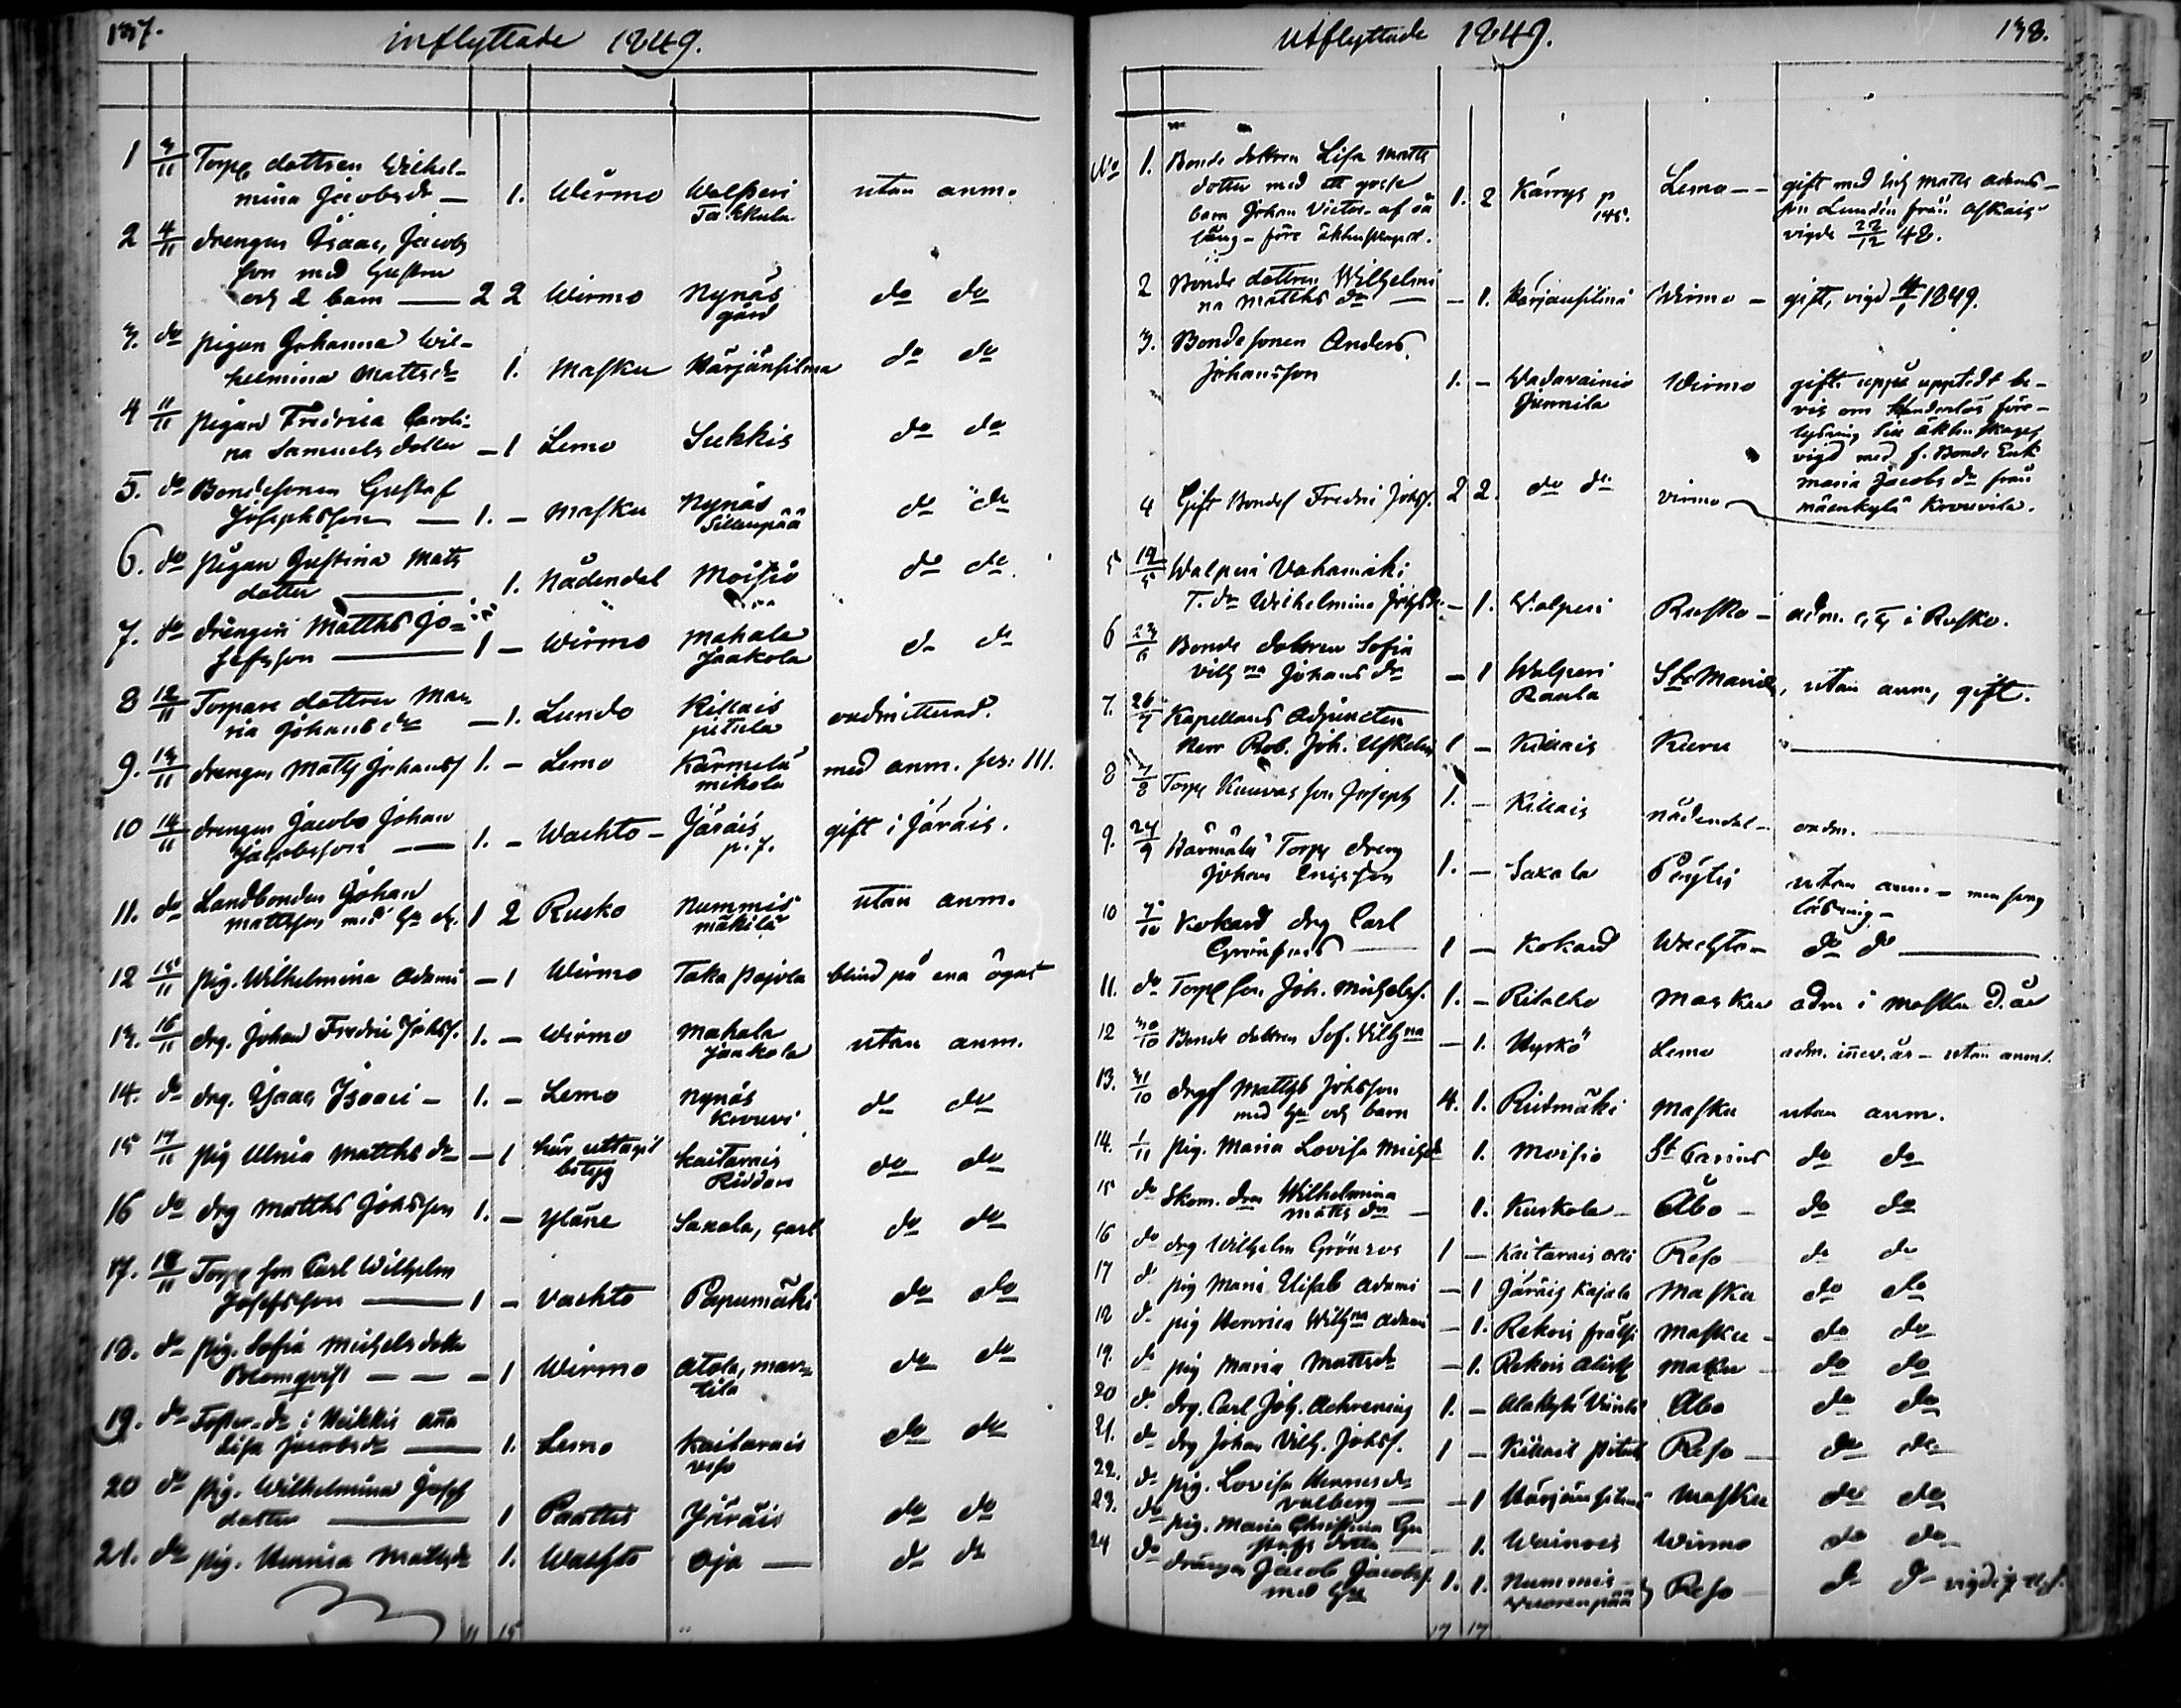 137.
inflyttade 1849.
1 3/11 Torp. dottren Wilhel-
mina Jacobsdr — 1. Wirmo Walperi utan anm.
2 4/11 drengen Isaac Jacobs
son med hustru
och 2 barn — 2 2 Wirmo Nynäs
gård do do
3. do pigan Johanna Wil-
helmina Mattsdr 1. Masku Härjänsilma do do
4 11/11 pigan Fredrica Caroli-
na Samuels dotter — 1 Lemo Sukkis do do
5. do Bondesonen Gustaf
Josephsson — 1. — Masku Nynäs
Sillanpää do do
6. do pigan Gustina Mats
dotter — 1. Nådendal Moisio do do
7. do drengen Matths Jo-
sefsson — 1 — Wirmo Mahala
Jaakola do do
8 12/11 Torpare dottren Ma-
ria Johansdr — 1. Lundo Killais
pitula oadmitterad.
9. 13/11 drengen Matts Johanss 1. — Lemo Kärmelä
mikola med anm. pag: 111.
10 14/11 drengen Jacob Johan
Jacobsson — 1. — Wachto — Järäis
p. 7. gift i Järäis.
11. do Landbonden Johan
Mattsson med hu 1 2 Rusko Nummis
mäkilä utan anm.
12 15/11 pig. Wilhelmina Adami — 1 Wirmo Taka pajola blind på ena ögat
13. 16/11 drg. Johan Fredric Johss. 1. — Wirmo Mahala
Jaakola utan anm.
14. do drg. Isaac Isaaci — 1. — Lemo Nynäs
Krouvi do do
15 17/11 pig Ulrica Matths dr — 1 här uttagit
betyg Kaitarais
Riddari do do
16 do drg Matths Johsson 1. — Yläne Saxala, gård do do
17. 18/11 Torp son Carl Wilhelm
Josefsson — 1 — Vachto Papumäki do do
18. do pig. Sofia Michels dotter
Blomqvist — 1 Wirmo Atola, mar-
tila do do
19. do Torpar-dr i Heikkis Anna
Lisa Jacobsdr — 1. Lemo Kaitarais do do
20 do pig. Wilhelmina Josef
dotter — 1 Paattis Järäis do do
21. do pig. Henrica Mattsdr 1. Wachto oja — do do
11 15
Utflyttade 1849. 138.
No 1. Bonde dottren Lisa Matts
dotter med ett gosse
barn Johan Victor af sä
läng — före äktenskapet. 1. 2 Kärrys p
145. Lemo — gift med Matts Adams-
son Lundén från Askais
vigde 22/12 48.
2 Bonde dottren Wilhelmi
na Matths dr — — 1. Härjänsilmä Wirmo — gift, vigd 4/1 1849.
3. Bondesonen Anders
Johansson 1. — Wadavainio
Junnila Wirmo gift uppå upptedt be-
vis om hinderlös före-
lysning till äktenskapet
vigd med f. Bonde Enk
Maria Jacobs dr från
Mäenkylä Krouvila.
4 Gift Bondes Fredric Johss. 2 2. do do Virmo
5 12/5 Walperi Vahamäki
T. dr Wilhelmina Johsdr. — 1. Walperi Rusko — adm. i Rusko.
6 23/6 Bonde dottren Sofia
Vilhna Johans dr — 1 Walperi
Raula St Mariæ, utan anm, gift.
7. 26/7 Kapellans Adjuncten
Herr Rob. Joh. 1 — Killais Kuru —
8 7/8 Torp son Joseph 1. — Killais Nådendal — oadm.
9. 24/9 Härmälä Torp dreng
Johan Ericsson 1. — Saxala Pöytis utan anm —
10 7/10 Kokard drg Carl
Grönfors 1 — Kokard Wachto — do do
11. do Torp son Joh. Michelss. 1. — Ritalho Masku adm i Masku d. år
12 30/10 Bonde dottren Sof. Vilhna — 1. Hyrkö Lemo adm. innev. år — utan anm.
13. 31/10 drg Matths Johsson
med hu och barn 4. 1. Riidmäki Masku utan anm.
14. 1/11 pig. Maria Lovisa Michsdr 1. Moisio St Carins do do
15 do Skom. drn Wilhelmina
Matts dr — 1. Kuskola — Åbo — do do
16 do drg Wilhelm Grönroos 1 — Kaitarais olli Reso do do
17 do pig Maria Elisab Adami — 1 Järäis Kajala Masku do do
18 do pig Henrica Wilhna Adami — 1. Rekois frälsi Masku — do do
19. do pig Maria Mattsdr — 1. Rekois Masku — do do
20 do drg. Carl Joh. 1. — Alakylä Åbo do do
21. do drg Johan Vilh. Johss. 1 — Killais pitula Reso — do do
22. do pig. Lovisa Hennesdr
Valberg — — 1 Härjänsilmä Masku do do
23. do pig. Maria Christina Gu
stafs dotter — 1. Wainois Wirmo do do
24 do drängen Jacob Jacobss.
med hu 1. 1. Nummis
Wuorenpää Reso do do
17 17